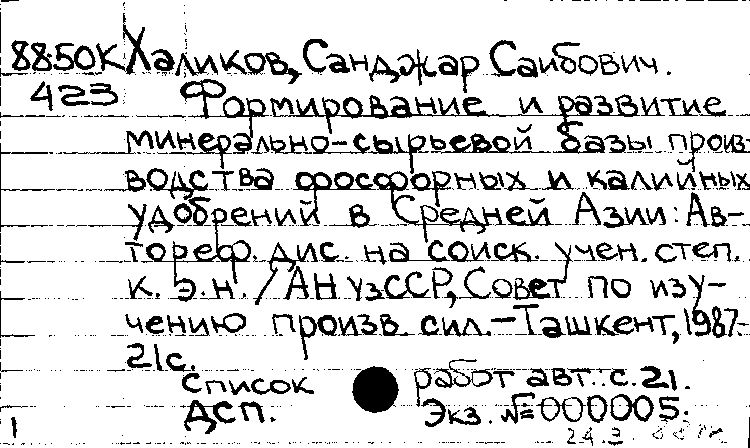 8850К Халиков, Санджар Саибович.
423 Формирование и развитие
минерально-сырьевой базы произ-
водства фосфорных и калийных
удобрений в Средней Азии: Ав-
тореф. дис. на соиск. учен. степ.
к. э. н. / АН УзССР, Совет по изу-
чению произв. сил. - Ташкент, 1987.-
21с.
Список работ авт.: с. 21.
ДСП. Экз. №000005.
1